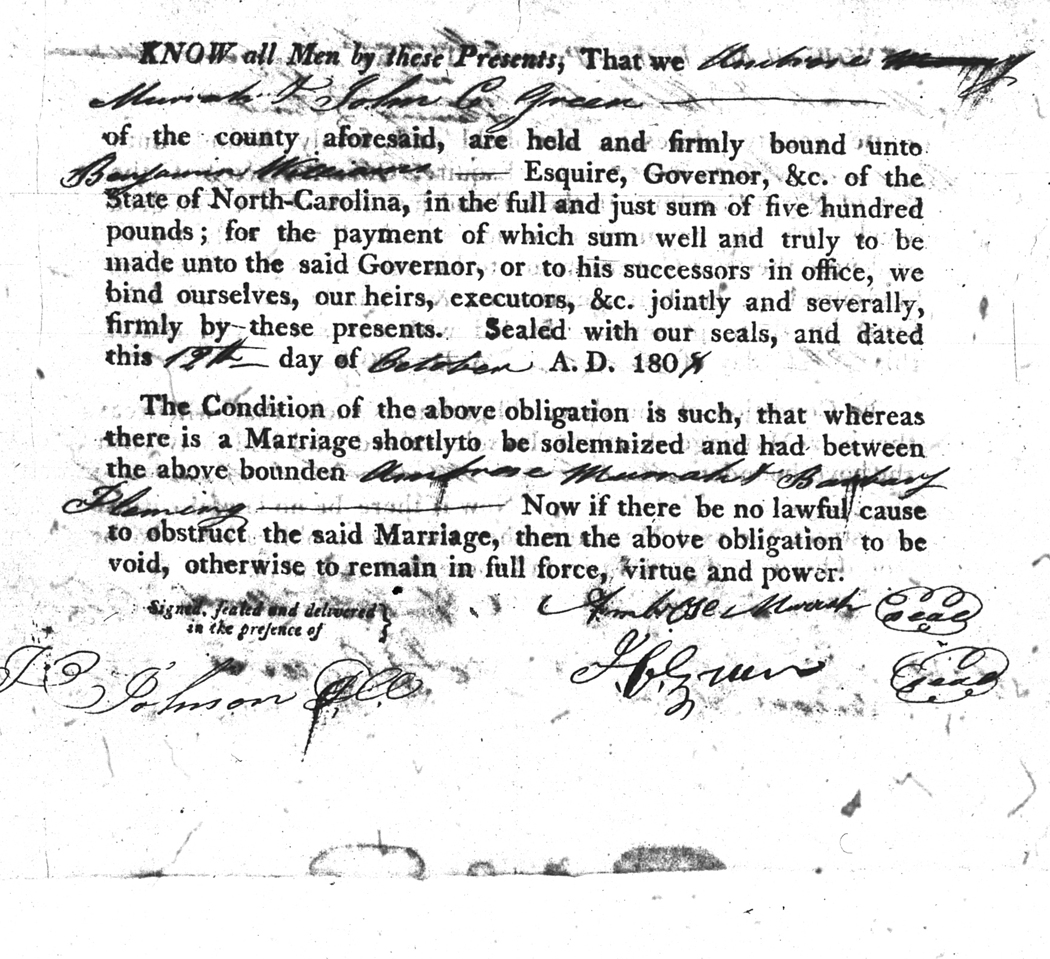 KNOW all Men by these Presents, That we Ambrose
Murrah & John C Green
of the county aforesaid, are held and firmly bound unto
Benjamin Williams Esquire, Governor, &c. of the
State of North-Carolina, in the full and just sum of five hundred
pounds; for the payment of which sum well and truly to be
made unto the said Governor, or to his successors in office, we
bind ourselves, our heirs, executors, &c. jointly and severally,
firmly by these presents. Sealed with our seals, and dated
this 12th day of October A. D. 180
The Condition of the above obligation is such, that whereas
there is a Marriage shortlyto be solemnized and had between
the above bounden Ambrose Murrah & Barbary
Fleming Now if there be no lawful cause
to obstruct the said Marriage, then the above obligation to be
void, otherwise to remain in full force, virtue and power.
Signed, sealed and delivered
in the presence of
Ambrose Murrah Seal
J C Johnson
J.C. Green Seal